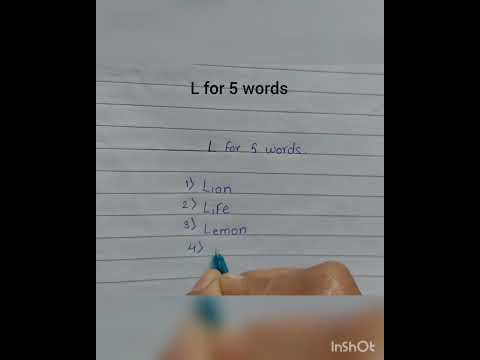 L for 5 words
L for 5 words.
1) Lion
2) Life
3) Lemon
4)
InShOt